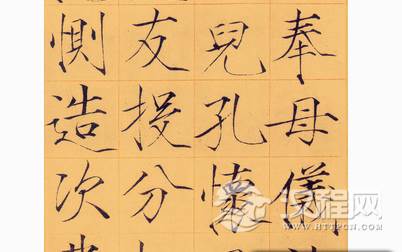 奉母儀
兒孔懷
友投分
惻造次
汉程网
WWW.HTTPCN.COM